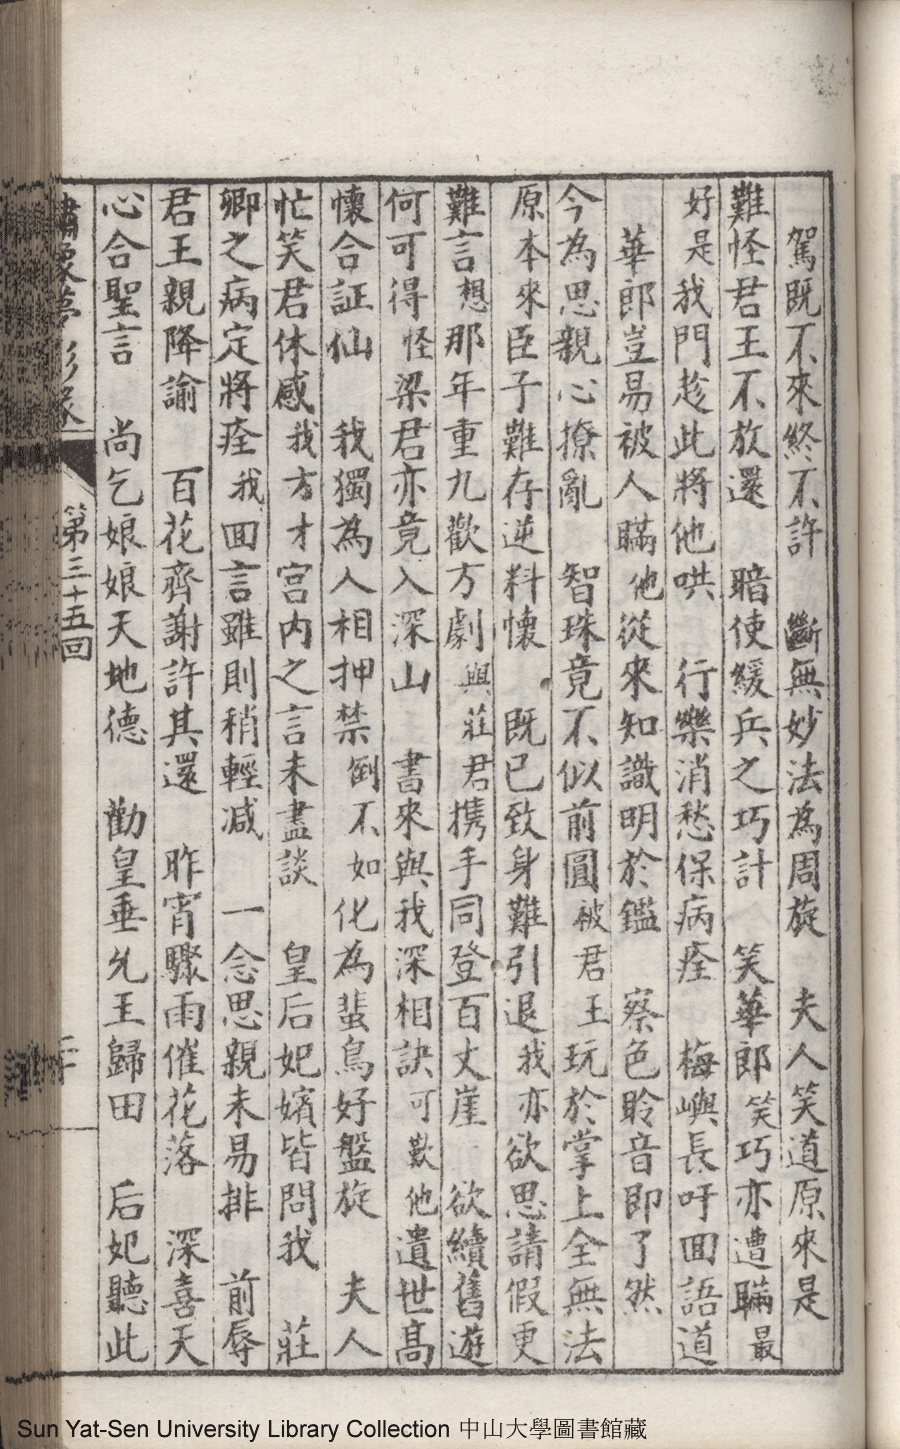 駕旣不來終不許　斷無妙法為周旋　夫人笑道原來是
難怪君王不放還　暗使緩兵之巧計　笑華郎笑巧亦遭瞞最
好是我門趁此將他哄　行樂消愁保病痊　梅嶼長吁囬語道
華郎豈易被人瞞他從來知識明於鑑　察色聆音即了然
今為思親心撩亂　智珠竟不似前圓被君王玩於掌上全無法
原本來臣子難存逆料懷　既已致身難引退我亦欲思請假更
難言想那年重九歡方劇與莊君携手同登百丈崖　欲續舊遊
何可得怪梁君亦竟入深山　書來與我深相訣可歎他遺世高
懷合証仙　我獨為人相押禁倒不如化為蜚鳥好盤旋　夫人
忙笑君休感我方才宫内之言未盡談　皇后妃嬪皆問我　莊
卿之病定將痊我囬言雖則稍輕减　一念思親未易排　前辱
君王親降諭　百花齊謝許其還　昨宵驟雨催花落　深喜天
心合聖言　尚乞娘娘天地德　勸皇垂允王歸田　后妃聽此
繡像夢影緣　第三十五回
Sun Yat-Sen University Library Collection 中山大學圖書館藏